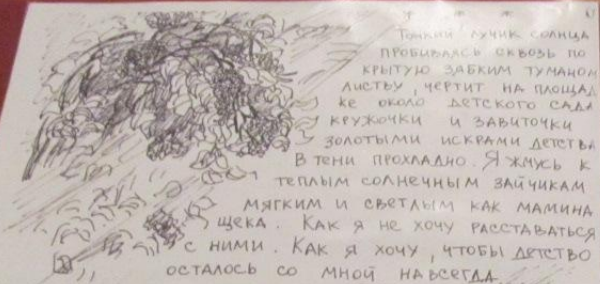 Тонкий лучик солнца
пробиваясь сквозь по
крытую зябким туманом
листву, чертит на площад
ке около детского сада
кружочки и завиточки
золотыми искрами детства
В тени прохладно. Я жмусь к
теплым солнечным зайчикам
мягким и светлым как мамина
щека. Как я не хочу расставаться
с ними. Как я хочу, чтобы детство
осталось со мной навсегда.